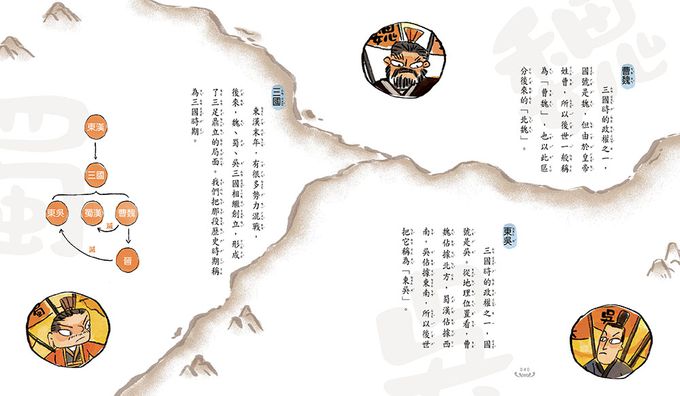 曹魏
三國時的政權之一，
國號是魏，但由於皇帝
姓曹，所以後世一般稱
為「曹魏」，也以此區
分後來的「北魏」。
東吳
三國時的政權之一，國
號是吳。從地理位置看，曹
魏佔據北方，蜀漢佔據西
南，吳佔據東南，所以後世
把它稱為「東吳」。
三國
東漢末年，有很多勢力混戰，
後來，魏、蜀、吳三國相繼創立，形成
了三足鼎立的局面。我們把那段歷史時期稱
為三國時期。
東漢
三國
東吳
蜀漢
曹魏
滅
滅
晉
魏
蜀
吳
魏
吳
040